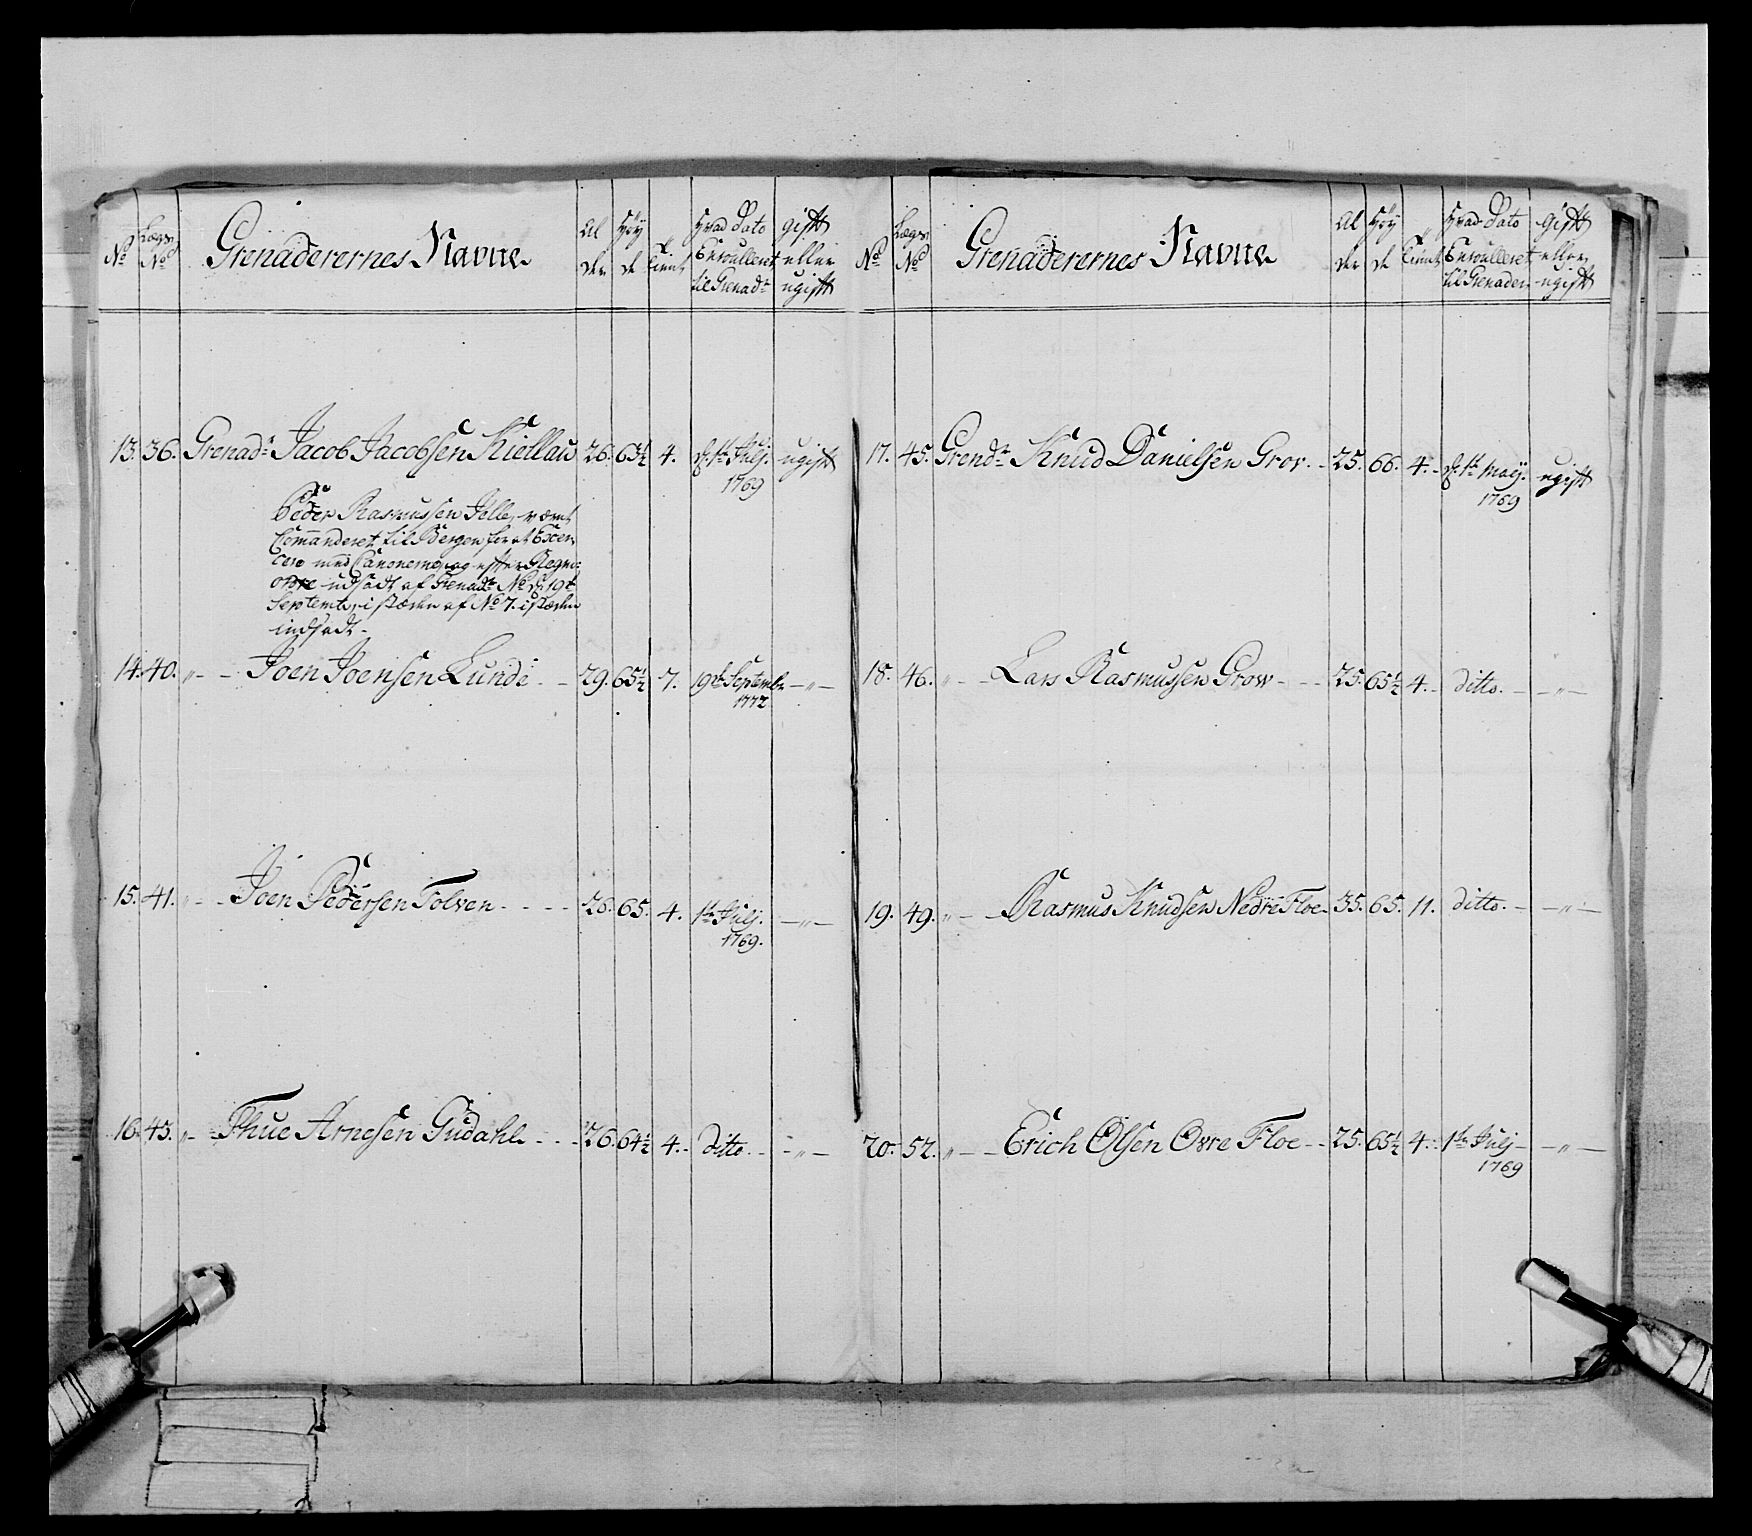 No | Lægs No | Grenaderernes Navne | Al der | Høy de | tient | Hvad Dato Enroulleret til Grenadr | gift eller ugift
13. 36. Grenadr Jacob Jacobsen Kiellau 26. 63½ 4. d: 1te Julj. 1769 ugift
Peder Rasmussen Jelle, været
Commanderet til Bergen for at Exer
cere med Canonerne, og efter Regm:
ordre udsadt af Grenadr No d: 19de
Septembr, i stæden af No 7. i stæden
indsadt.
14. 40. „ Joen Joensen Lunde 29. 65½ 7. 19de Septembr 1772 — „ —
15. 41. „ Joen Pedersen Tolven 26. 65. 4. 1te Julj. 1769. — „ —
16. 43. „ Thue Arnesen Gudahl 26. 64½ 4. ditto. — „ —
No | Lægs No | Grenaderernes Navne | Al der | Høy de | tient | Hvad Dato Enroulleret til Grenader | gift eller ugift
17. 45. Grendr Knud Danielsen Grov 25. 66. 4. d: 1te Maij. 1769 ugift
18. 46. „ Lars Rasmussen Grov 25. 65½ 4. ditto. — „ —
19. 49. „ Rasmus Knudsen Nedre Floe 35. 65. 11. ditto. — „ —
20. 52. „ Erich Olsen Ovre Floe 25. 65½ 4. 1te Julj 1769 — „ —